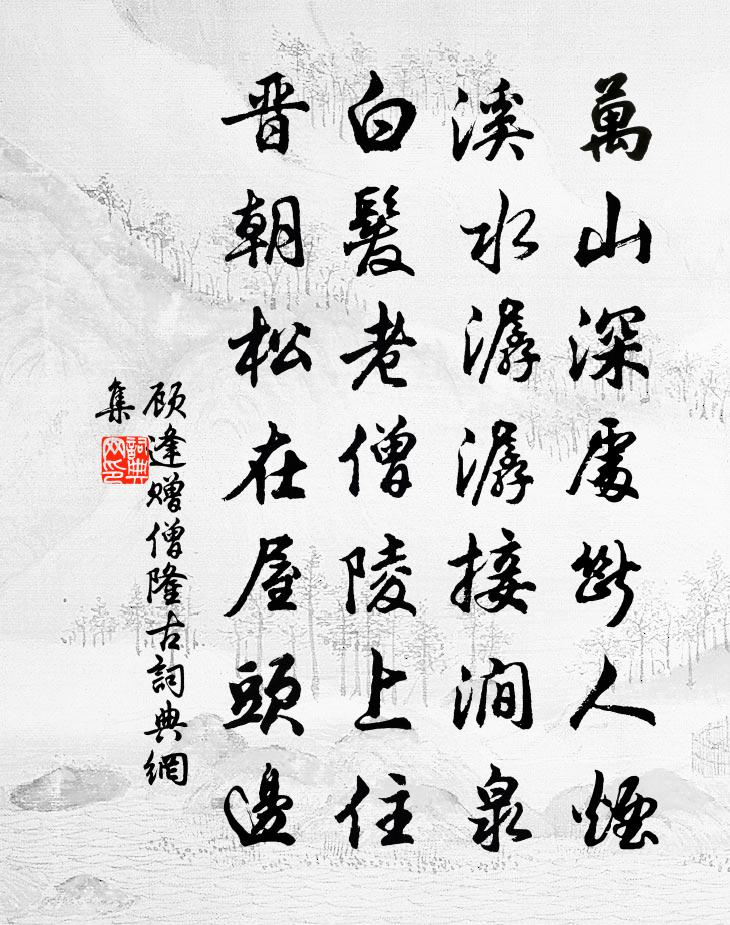 萬山深處斷人煙
溪水潺潺接澗泉
白髮老僧陵上住
晋朝松在屋頭邊
顧逢贈僧隆古詞典網
集
詞典
網印